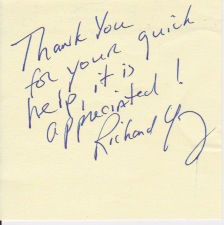 Thank You
for your quick
help, it is
appreciated!
Richard